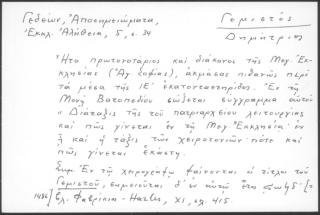 Γεδεών, Ἀποσημειώματα,
Ἐκκλ. Ἀλήθεια, 5, σ. 34
Γεμιστός
Δημήτριος
Ἦτο πρωτονοτάριος καὶ διάκονος τῆς Μεγ. Ἐκ-
κλησίας (Ἁγ. Σοφίας), ἀκμάσας πιθανῶς περὶ
τὰ μέσα τῆς ΙΕ΄ ἑκατονταετηρίδος. Ἐν τῇ
Μονῇ Βατοπεδίου σώζεται σύγγραμμα αὐτοῦ
« Διάταξις τῆς τοῦ πατριάρχου λειτουργίας
καὶ πῶς γίνεται ἐν τῇ Μεγ. Ἐκκλησίᾳ· ἐν
ᾗ καὶ ἡ τάξις τῶν χειροτονιῶν πότε καὶ
πῶς γίνεται ἑκάστη.
Σημ. Ἐν τῷ χειρογράφῳ φαίνονται οἱ τίτλοι τοῦ
Γεμιστοῦ, σημειοῦται δ' ἐν αὐτῷ ἔτος
1436] Βλ. Φαβρίκιον - Harles, XI, σελ. 415.